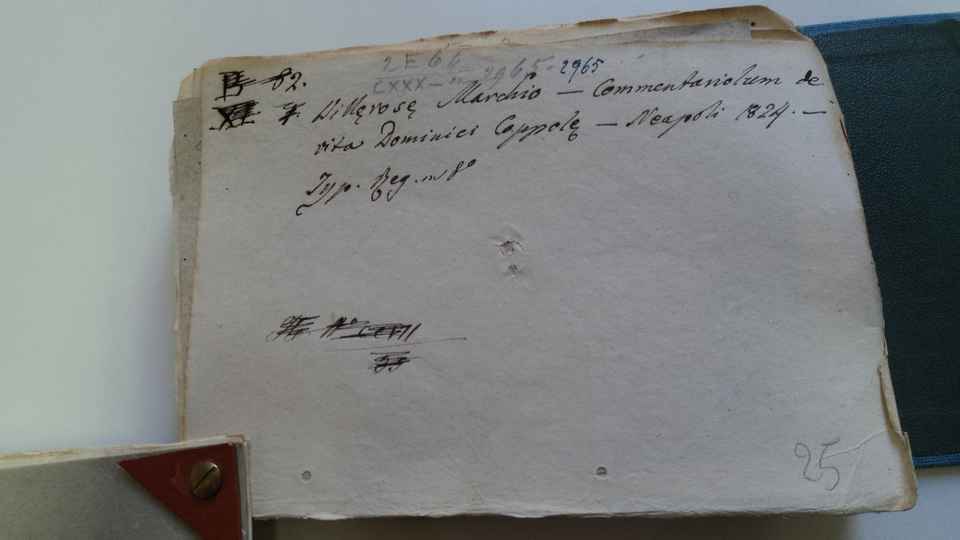 2 F 66
B 82. CXXX 2965 2965
XI 7 Villęrosę Marchio — Commentariolum de
vita Dominici Coppolę — Neapoli 1824. —
Typ. Reg. in 8º
Nº CCVII
25